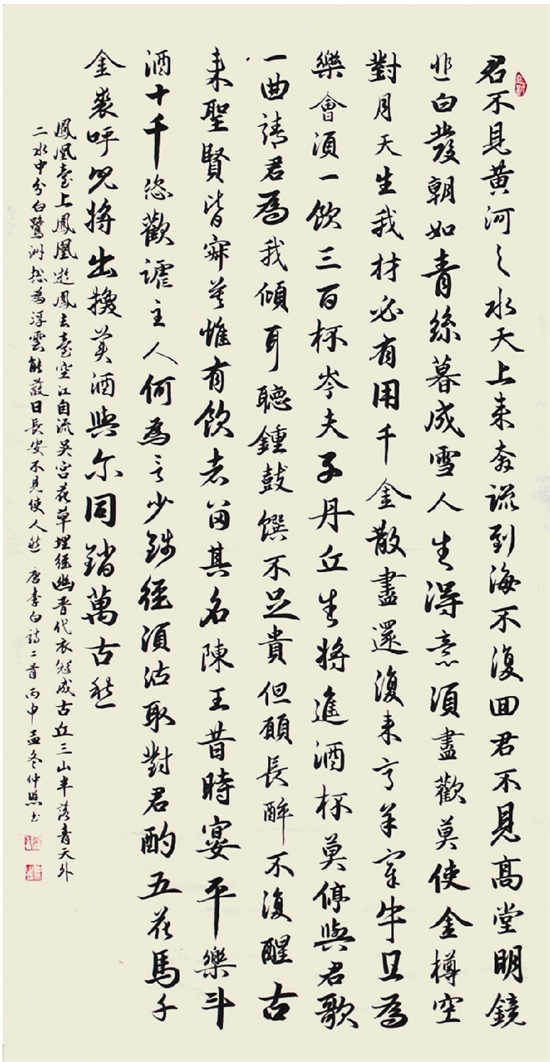 君不見黃河之水天上來奔流到海不復回君不見高堂明鏡
悲白發朝如青絲暮成雪人生得意須盡歡莫使金樽空
對月天生我材必有用千金散盡還復來亨羊宰牛且為
樂會須一飲三百杯岑夫子丹丘生將進酒杯莫停與君歌
一曲請君為我傾耳聽鍾鼓饌不足貴但願長醉不復醒古
來聖賢皆寂莫惟有飲者留其名陳王昔時宴平樂斗
酒十千恣歡謔主人何為言少錢徑須沽取對君酌五花馬千
金裘呼兒將出換美酒與尔同銷萬古愁
鳳凰臺上鳳凰遊鳳去臺空江自流吳宮花草埋徑幽晉代衣冠成古丘三山半落青天外
二水中分白鷺洲總為浮雲能蔽日長安不見使人愁 唐李白詩二首 丙申孟冬仲照書